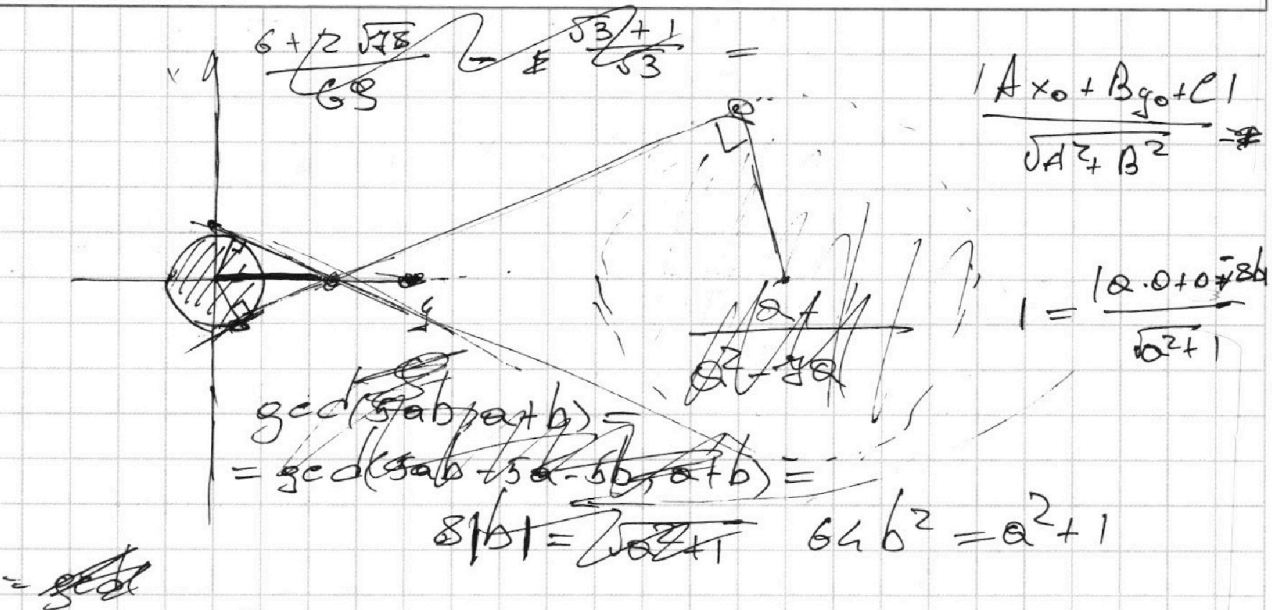 6 + 2√78 / 69 - √3 + 1 / √3 =
|Ax₀ + By₀ + C| / √A² + B² =
a + / a² - 7a
1 = |a·0 + 0 + 8b| / √a² + 1
gcd(5ab, a+b) =
= gcd(5ab - 5a - 5b, a+b) =
8|b| = √a² + 1 64b² = a² + 1
= gcd